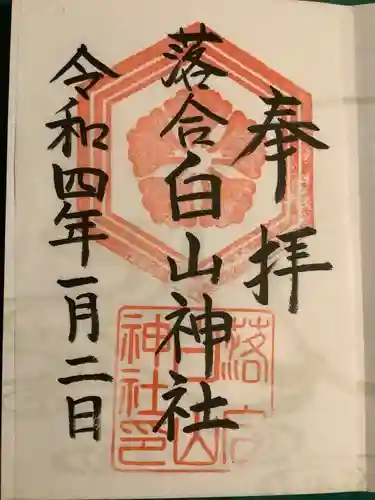 奉拝
落合白山神社
令和四年一月二日
落合
白山
神社印